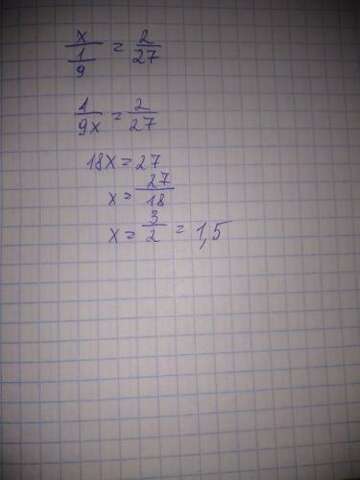 x/(1/9) = 2/27
1/9x = 2/27
18x = 27
x = 27/18
x = 3/2 = 1,5